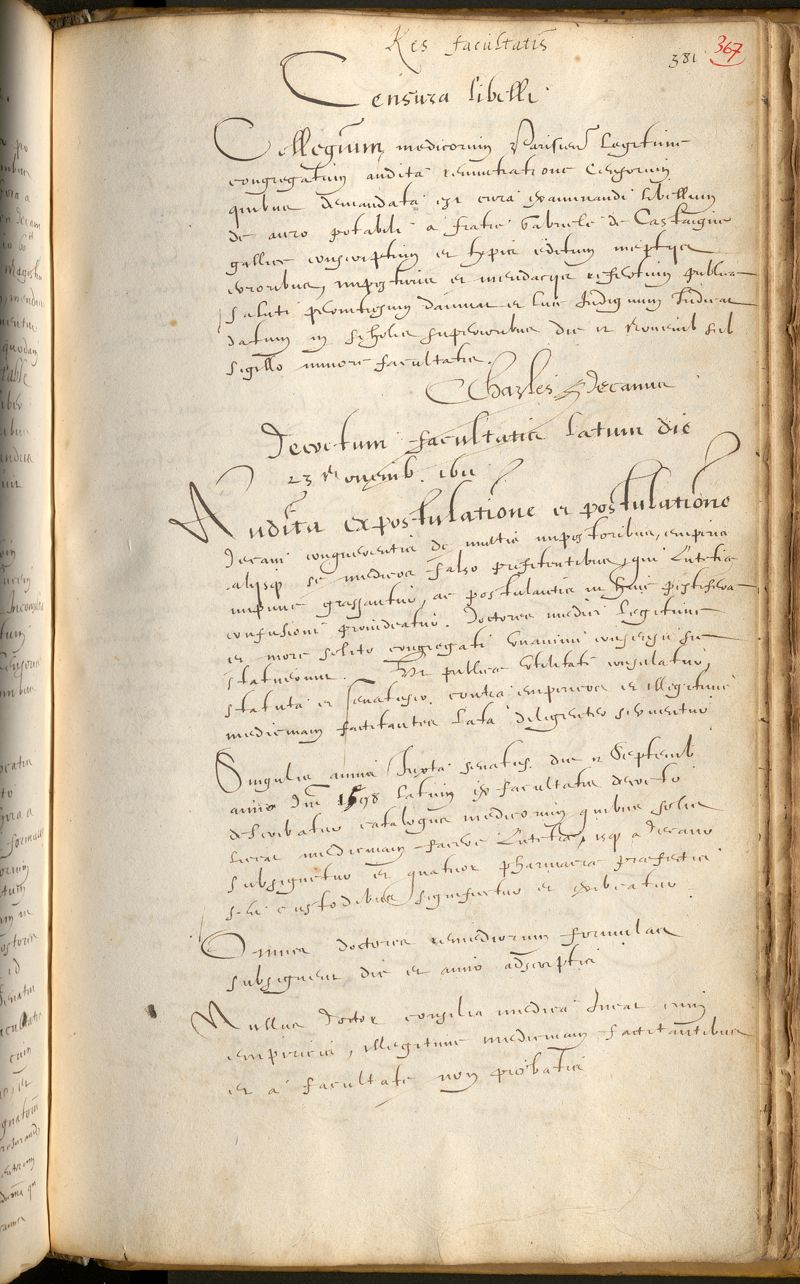 Res facultatis
381 367
Censura libelli
Collegium medicorum Parisiens legitime
congregatum audita renuntiatione Censorum
quibus demandata est cura examinandi libellum
de auro potabili a fratre Gabriele de Castaigne
gallice conscriptum et typis editum ineptijs
erroribus, imposturis et mendacijs refertum publicae
saluti damnat et luce Indignum Iudicat
datum in scholis superioribus die 12 Novemb sub
sigillo minore facultatis.
CCharles Decanus
Decretum facultatis latum die
23 Novemb. 1611
Audita expostulatione et postulatione
Decani conquerentis de multis impostoribus, empiricis
alijsq se medicos falso profitentibus, qui Lutetiae
impune grassantur, ac postulantis ut huic pestiferae
confusioni provideatur. Doctores medici legitime
et more solito congregati unanimi consensu sic
statuerunt. Ut publicae utilitati consulatur,
statuta et senatuscō. contra empiricos et illegitime
medicinam factitantes lata diligenter serventur
Singulis annis Iuxta senatus. die 12 Septemb
anno Dm̄ 1598 latum ex facultatis decreto
describatur catalogus medicorum, quibus solis
liceat medicinam facere Lutetiae, isq a decano
subsignetur et quatuor pharmaciae praefectis
seu custodibus significetur et exibeatur
Omnes doctores remediorum formulas
subsignent die et anno adscriptis
Nullus doctor consilia medica Ineat cum
empiricis, illegitime medicinam factitantibus
et a facultate non probatis